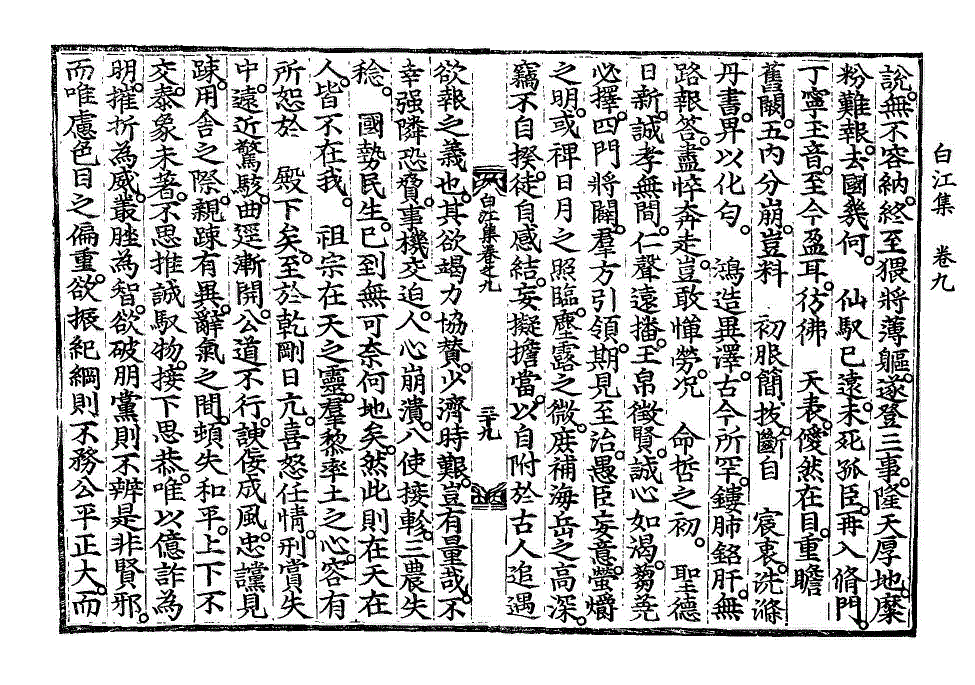 白江集 卷九
說。無不容納。終至猥將薄軀。遂登三事。隆天厚地。糜
粉難報。去國幾何。 仙馭已遠。未死孤臣。再入脩門。
丁寧玉音。至今盈耳。彷彿 天表。僾然在目。重瞻
舊闕。五內分崩。豈料 初服簡拔。斷自 宸衷。洗滌
丹書。畀以化勻。 鴻造異澤。古今所罕。鏤肺銘肝。無
路報答。盡悴奔走。豈敢憚勞。况 命哲之初。 聖德
日新。誠孝無間。仁聲遠播。玉帛徵賢。誠心如渴。蒭蕘
必擇。四門將闢。羣方引領。期見至治。愚臣妄意。螢爝
之明。或裨日月之照臨。塵露之微。庶補海岳之高深。
竊不自揆。徒自感結。妄擬擔當。以自附於古人追遇
白江集卷之九 三十九
欲報之義也。其欲竭力協贊。少濟時艱。豈有量哉。不
幸强隣恐喝。事機交迫。人心崩潰。八使接軫。三農失
稔。 國勢民生。已到無可奈何地矣。然此則在天在
人。皆不在我。 祖宗在天之靈。羣黎率土之心。容有
所恕於 殿下矣。至於乾剛日亢。喜怒任情。刑賞失
中。遠近驚駭。曲逕漸開。公道不行。諛佞成風。忠讜見
踈。用舍之際。親踈有異。辭氣之間。頓失和平。上下不
交。泰象未著。不思推誠馭物。接下思恭。唯以億詐爲
明。摧折爲威。叢脞爲智。欲破朋黨則不辨是非賢邪。
而唯慮色目之偏重。欲振紀綱則不務公平正大。而